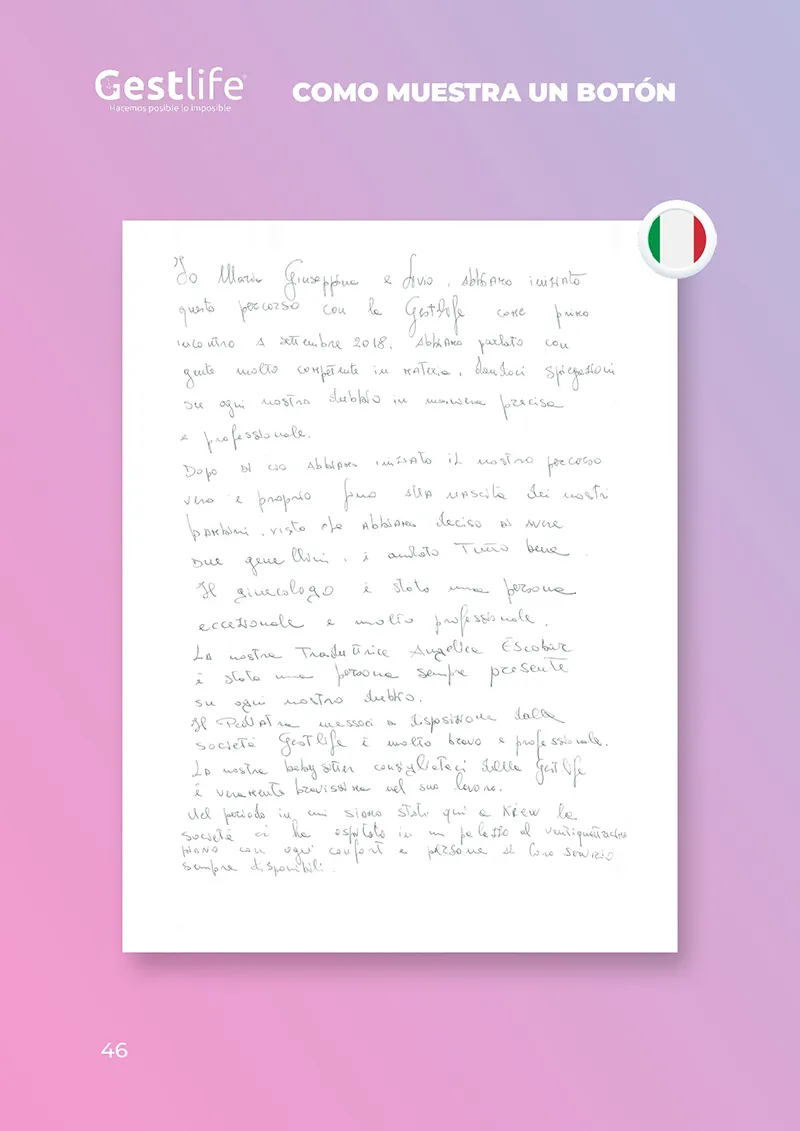 Gestlife
Hacemos posible lo imposible
COMO MUESTRA UN BOTÓN
Io Maria Giuseppina e Livio, abbiamo iniziato
questo percorso con la Gestlife come primo
incontro a settembre 2018. Abbiamo parlato con
gente molto competente in materia, dandoci spiegazioni
su ogni nostro dubbio in maniera precisa
e professionale.
Dopo di ciò abbiamo iniziato il nostro percorso
vero e proprio fino alla nascita dei nostri
bambini, visto che abbiamo deciso di avere
due gemellini, è andato Tutto bene.
Il ginecologo è stato una persona
eccezionale e molto professionale.
La nostra Traduttrice Angelica Escobar
è stata una persona sempre presente
su ogni nostro dubbio.
Il Pediatra messoci a disposizione dalla
società Gestlife è molto bravo e professionale.
La nostra babysitter consigliataci dalla Gestlife
è veramente bravissima nel suo lavoro.
Nel periodo in cui siamo stati qui a Kiew la
società ci ha ospitato in un palazzo al
piano con ogni confort e persone al loro servizio
sempre disponibili.
46